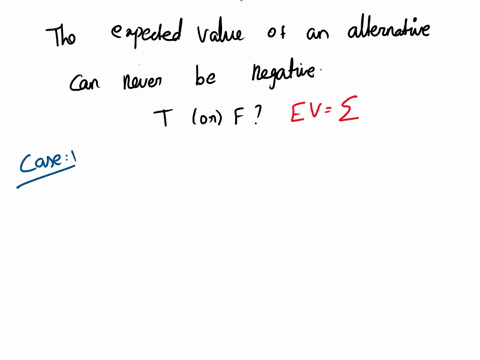 The expected value of an alternative
can never be negative.
T (or) F? EV = Σ
Case:1